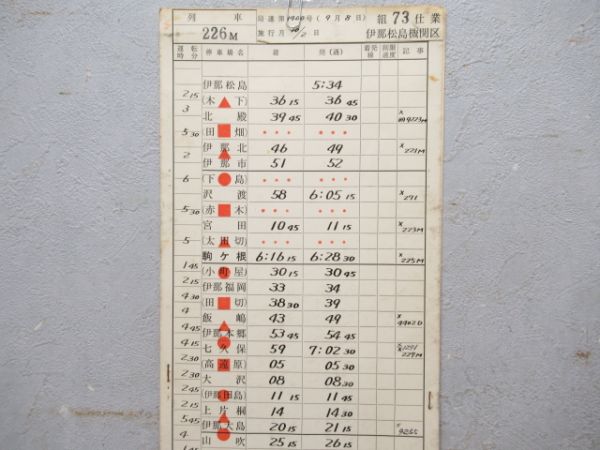 列 車 局達第1900号(9月8日) 組 73 仕業
226M 施行月日 10/2 伊那松島機関区
運転時分 停車場名 着 発(通) 着発線 制限速度 記事
伊那松島 5:34
2 15
(木ノ下) 36 15 36 45
3
北殿 39 45 40 30
(田畑) • • • • • •
5 30
伊那北 46 49 × 221M
2
伊那市 51 52
6
(下島) • • • • • •
沢渡 58 6:05 15 × 291
(赤木) • • • • • •
5 30
宮田 10 45 11 15 × 223M
(太田切) • • • • • •
5
駒ケ根 6:16 15 6:28 30 × 225M
1 45
(小町屋) 30 15 30 45
2 15
伊那福岡 33 34
4 30
(田切) 38 30 39
4
飯嶋 43 49 × 4402D
4 45
伊那本郷 53 45 54 45
4 15
七久保 59 7:02 30 1291 229M
2 30
(高遠原) 05 05 30
2 30
大沢 08 08 30
2 45
(伊那田島) 11 15 11 45
2 15
上片桐 14 14 30
5 45
伊那大島 20 15 21 15 9265
4
山吹 25 15 26 15
1 45